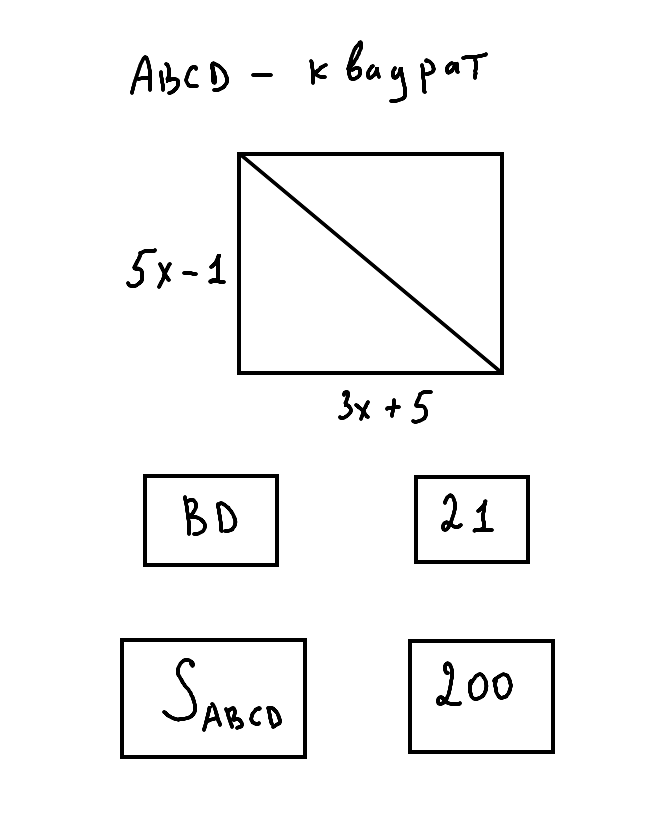 ABCD – квадрат
5x-1
3x+5
BD
21
S_ABCD
200